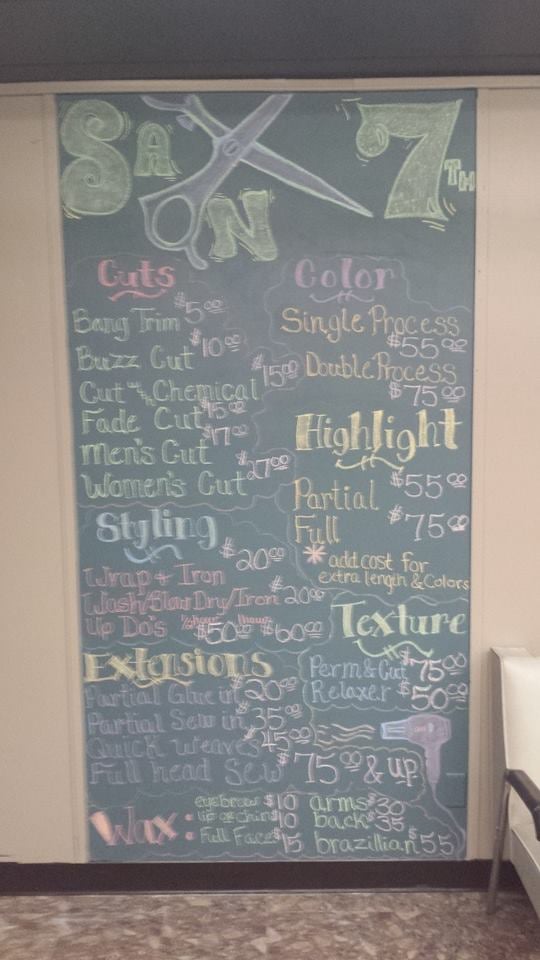 SAXON 7TH
Cuts
Bang Trim $5.00
Buzz Cut $10.00
Cut w/ Chemical $15.00
Fade Cut $15.00
Men's Cut $17.00
Women's Cut $27.00
Styling
Wrap + Iron $20.00
Wash/Blow Dry/Iron $20.00
Up Do's 1/2 hour $50.00 1 hour $60.00
Extensions
Partial Glue in $20.00
Partial Sew in $35.00
Quick weaves $45.00
Full head Sew $75.00 & up
Color
Single Process
$55.00
Double Process
$75.00
Highlight
Partial $55.00
Full $75.00
* add cost for
extra length & Colors
Texture
Perm & Cut $75.00
Relaxer $50.00
Wax:
eyebrow $10 arms $30
lip or chin $10 back $35
Full Face $15 brazillian $55